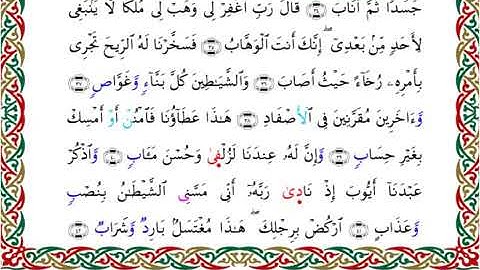 جَسَدًا ثُمَّ أَنَابَ ۝٣٤ قَالَ رَبِّ ٱغْفِرْ لِى وَهَبْ لِى مُلْكًا لَّا يَنۢبَغِى
لِأَحَدٍ مِّنۢ بَعْدِىٓ ۖ إِنَّكَ أَنتَ ٱلْوَهَّابُ ۝٣٥ فَسَخَّرْنَا لَهُ ٱلرِّيحَ تَجْرِى
بِأَمْرِهِۦ رُخَآءً حَيْثُ أَصَابَ ۝٣٦ وَٱلشَّيَٰطِينَ كُلَّ بَنَّآءٍ وَغَوَّاصٍ ۝٣٧
وَءَاخَرِينَ مُقَرَّنِينَ فِى ٱلْأَصْفَادِ ۝٣٨ هَٰذَا عَطَآؤُنَا فَٱمْنُنْ أَوْ أَمْسِكْ
بِغَيْرِ حِسَابٍ ۝٣٩ وَإِنَّ لَهُۥ عِندَنَا لَزُلْفَىٰ وَحُسْنَ مَـَٔابٍ ۝٤٠ وَٱذْكُرْ
عَبْدَنَآ أَيُّوبَ إِذْ نَادَىٰ رَبَّهُۥٓ أَنِّى مَسَّنِىَ ٱلشَّيْطَٰنُ بِنُصْبٍ
وَعَذَابٍ ۝٤١ ٱرْكُضْ بِرِجْلِكَ ۖ هَٰذَا مُغْتَسَلٌۢ بَارِدٌ وَشَرَابٌ ۝٤٢